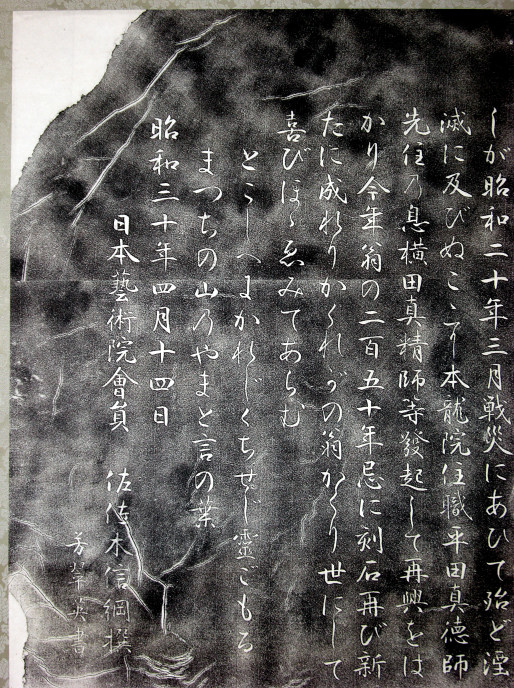 しが昭和二十年三月戦災にあひて殆ど湮
滅に及びぬこゝに本龍院住職平田真徳師
先住乃息横田真精師等發起して再興をは
かり今年翁の二百五十年忌に刻石再び新
たに成れりかくれがの翁かくり世にして
喜びほゝゑみてあらむ
とこしへにかれじくちせじ霊ごもる
まつちの山乃やまと言の葉
昭和三十年四月十四日
日本藝術院會員 佐佐木信綱撰
英書